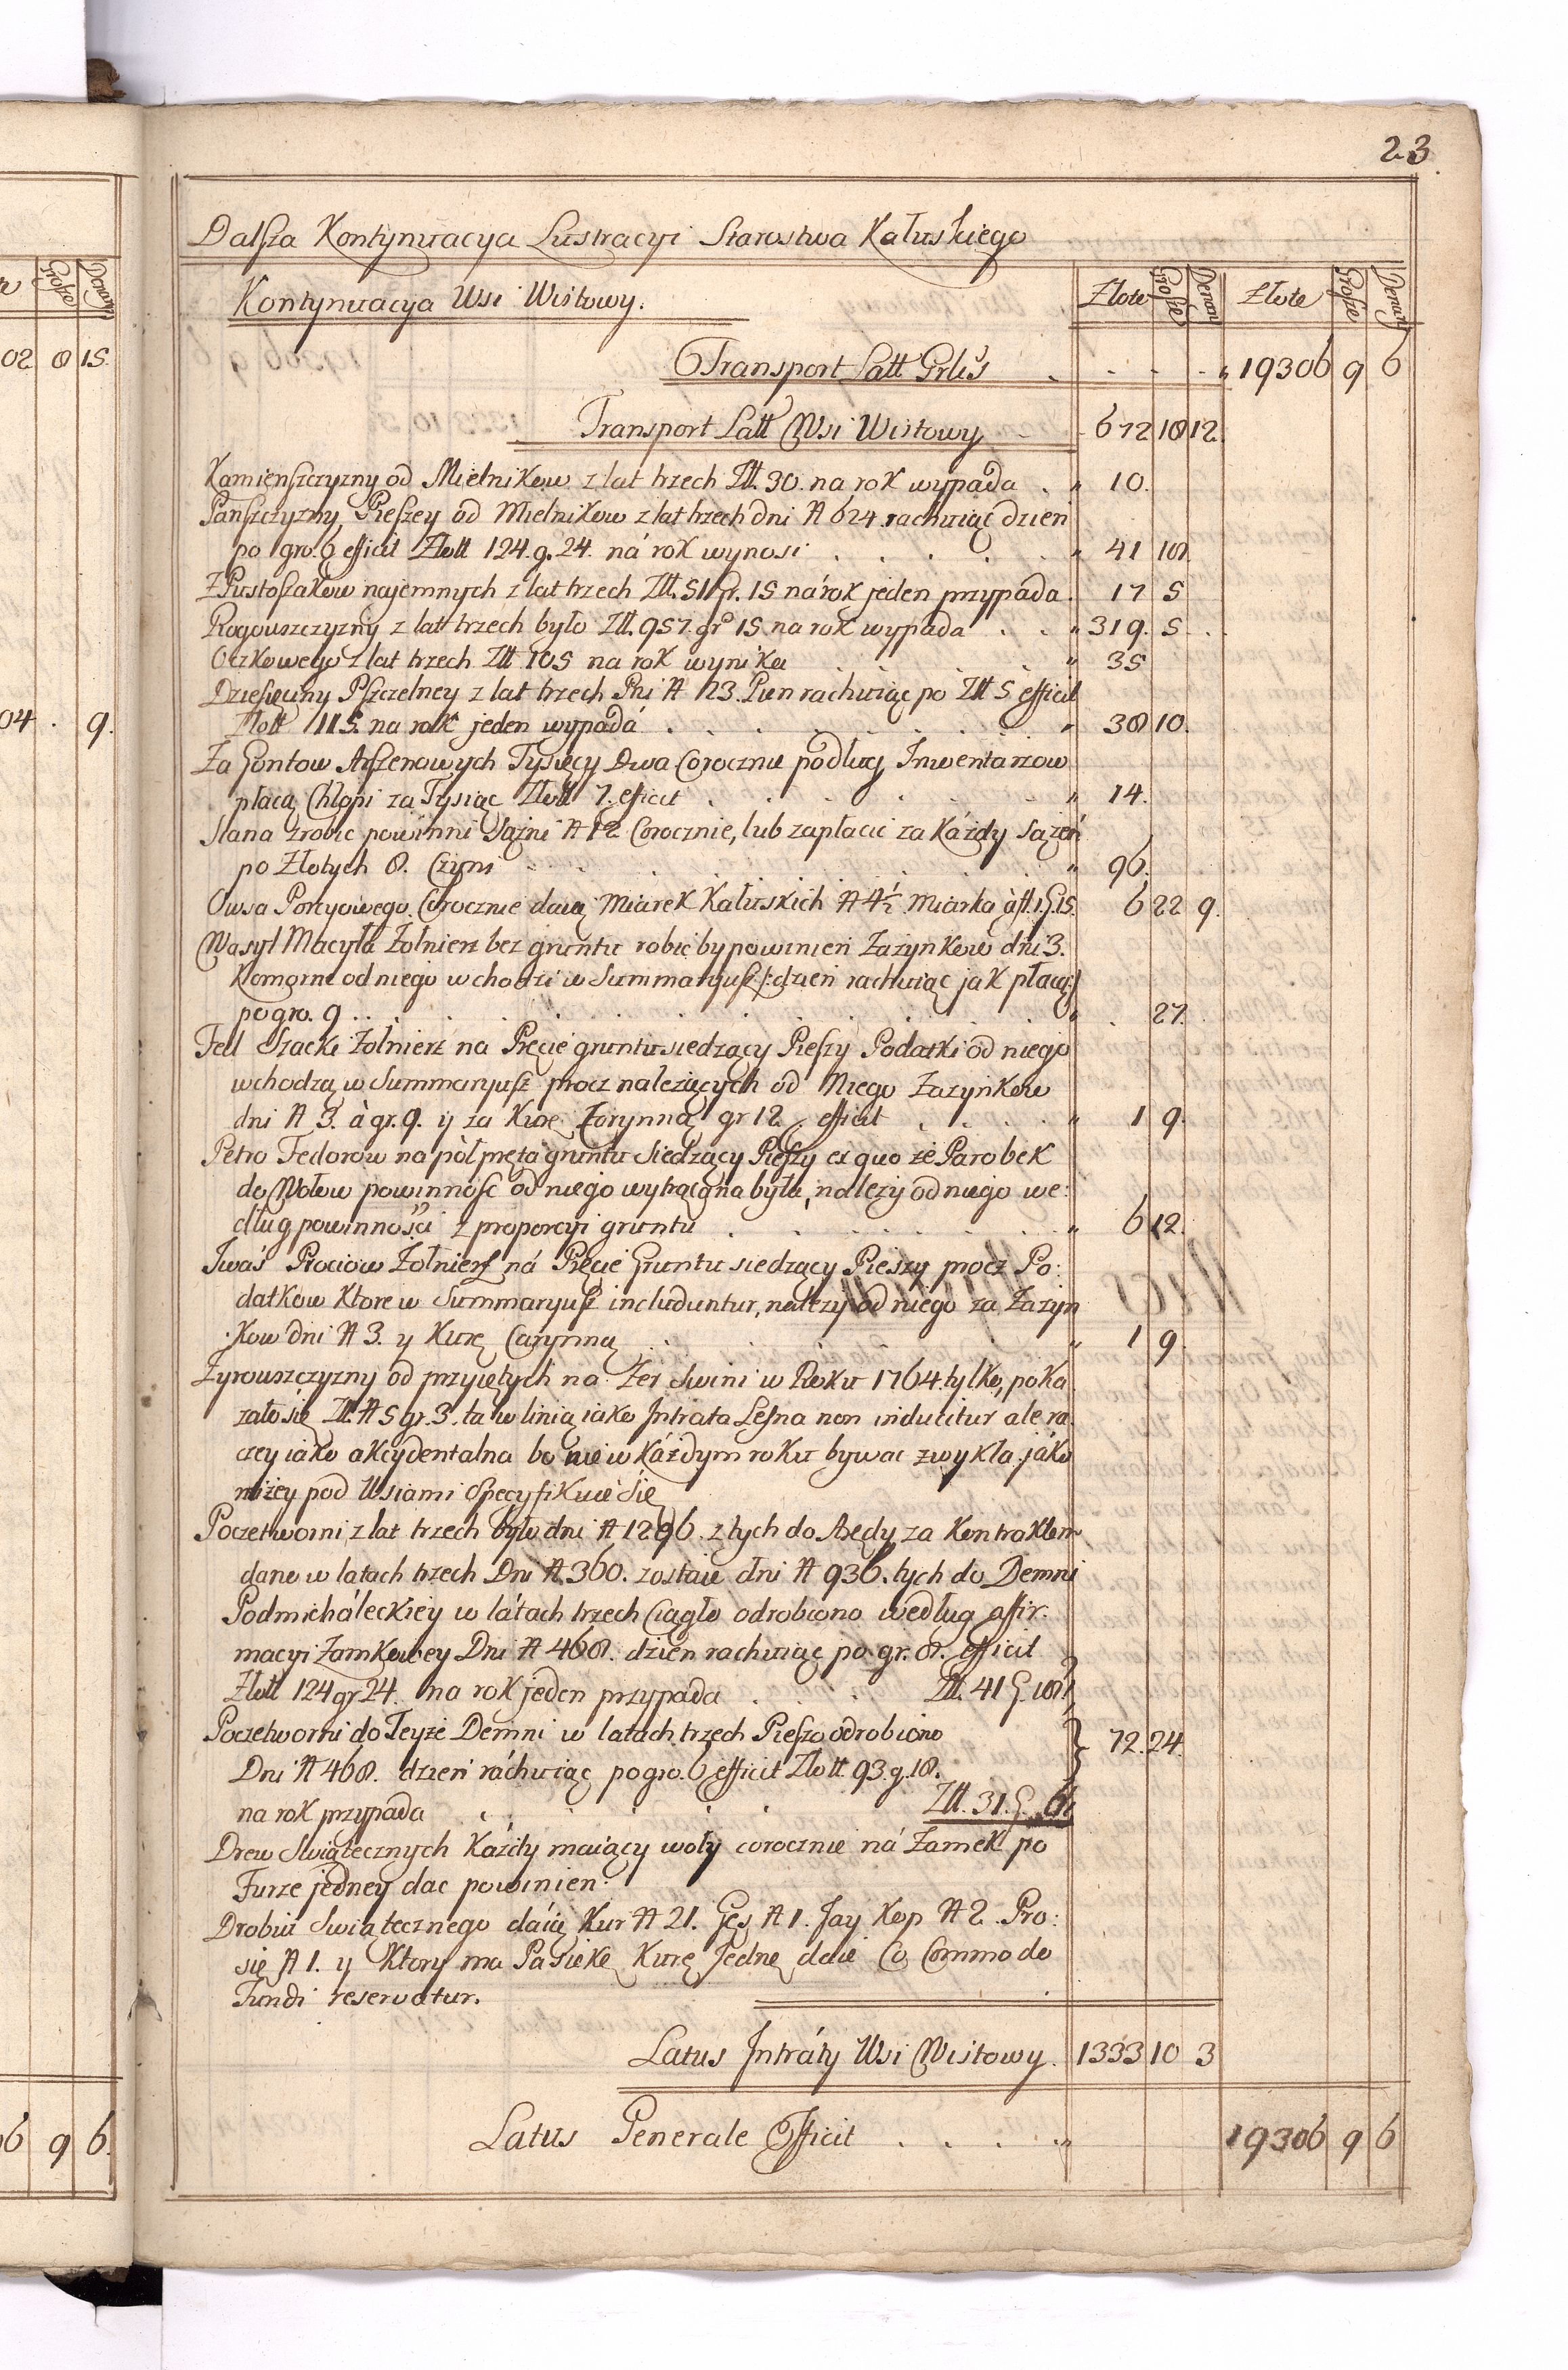 23
Dalsza Kontynuacya Lustracyi Starostwa Kałuskiego
Kontynuacya Wsi Wistowy. Złote Grosze Denar Złote Grosze Denary
Transport Latt Grlis . . . . . 19306 9 6
Transport Latt Wsi Wistowy 672 18 12
Kamienszczyzny od Mielnikow z lat trzech Złt. 30. na rok wypada . 10.
Panszczyzny Pieszey od Mielnikow z lat trzech dni N 624 rachuiąc dzień
po gro. 6 efficit Złott 124. g. 24. ná rok wynosi . . . . 41 18.
Z Pustoszakow najemnych z lat trzech Złł. 51 gr. 15 ná rok jeden przypada. 17 5
Rogouszczyzny z latt trzech było Złł. 957. gro 15. na rok wypada . . 319. 5
Oczkowego z lat trzech Złł 105 na rok wynika 35
Dziesięciny Pszczelney z lat trzech Pni N 23. Pień rachuiąc po Złł 5 efficit
Złott 115. na rok jeden wypadá . . . . 38 10.
Za Gontow Arszenowych Tysięcy Dwa Corocznie podług Inwentarzow
płacą Chłopi za Tysiąc Złott 7. efficit . . . . 14.
Siana zrobic powinni Sązni N 12 Corocznie, lub zapłacic za Kázdy Sążeń
po Złotych 8. Czyni 96.
Owsa Porcyowego Corocznie daią Miarek Kałuskich N 4½ Miarka à fl. 1 G. 15. 6 22 9.
Wasyl Macyła Zołnierz bez gruntu robic by powinień Zazynkow dni 3.
Komorne od niego wchodzi w Summaryusz /: dzień rachuiąc jak płacą :/
po gro. 9 . . . . . 27.
Fed Szacki Zołnierz na Pręcie gruntu siedzący Pieszy Podatki od niego
wchodzą w Summaryusz procz nalezących od Niego Zazynkow
dni N 3. à gr. 9. y za Kurę Zorynną gr 12. efficit . . . 1 9.
Petro Fedorow na pół pręta gruntu Siedzący Pieszy ex quo ze Parobek
do Wołow powinnosc od niego wytrącona była, nalezy od niego we:
dług powinnosci z proporcyi gruntu . . . 6 12.
Iwaś Prociow Zołnierz ná Pręcie Gruntu siedzący Pieszy procz Po:
datkow Ktore w Summaryusz includuntur, nalezy od niego za Zazyn
kow dni N 3. y Kurę Carynną . . . 1 9
Zyrouszczyzny od przyiętych na Zer Swini w Roku 1764. tylko, poka
zało się Zł. N 5 gr. 3. ta w linią iako Intrata Lesna non inducitur ale ra:
czey iako akcydentalna bo nie w kázdym roku bywac zwykła jáko
nizey pod Wsiami Specyfikuie Się
Poczetworni z lat trzech było dni N 1296. z tych do Arędy za Kontraktem
dano w latach trzech Dni N 360. zostaie dni N 936. tych do Demni
Podmicháleckiey w látach trzech Ciągło odrobiono według affir:
macyi Zamkowey Dni N 468. dzień rachuiąc po gr. 8. efficit
Złott 124 gr 24. na rok jeden przypada . . . . Złł. 41 G. 18.
Poczetworni do Teyze Demni w latach trzech Pieszo odrobiono } 72. 24.
Dni N 468. dzień ráchuiąc po gro. 6 efficit Złott. 93. g. 18.
na rok przypada . . . . Złł. 31. G. 6.
Drew Swiątecznych Kázdy maiący woły corocznie ná Zamek po
Furze jedney dac powinien.
Drobiu Swiątecznego daią Kur N 21. Gęś N 1. Jay Kop N 2. Pro:
się N 1. y Ktory ma Pasiekę Kurę Jednę daie Co Commodo
Fundi reservatur.
Latus Intráty Wsi Wistowy. 1333 10 3
Latus Generale Efficit . . . . 19306 9 6
Grosze Denary
02 8 15.
04 . 9.
6 9 6.